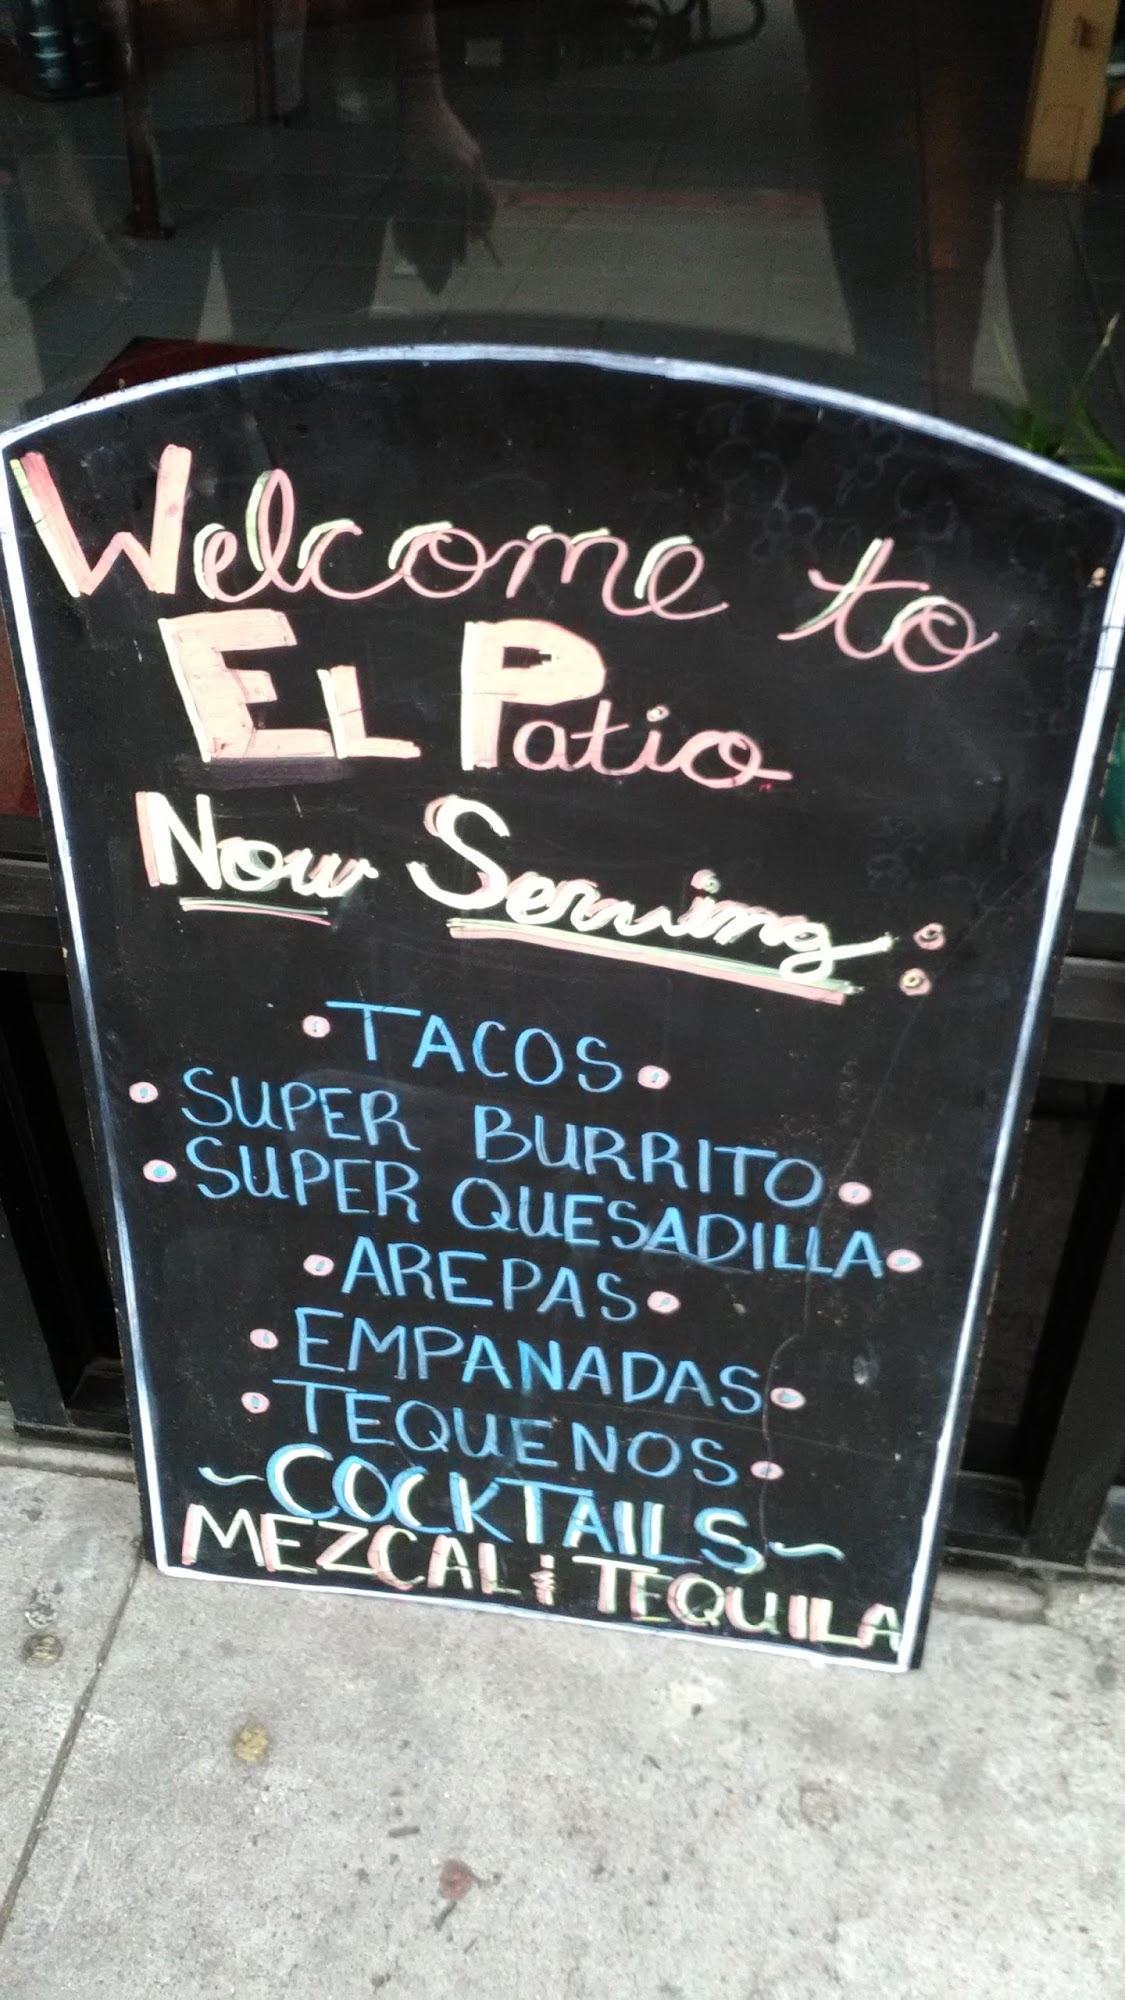 Welcome to
EL Patio
Now Serving:
• TACOS •
• SUPER BURRITO •
• SUPER QUESADILLA •
• AREPAS •
• EMPANADAS •
• TEQUENOS •
~COCKTAILS~
MEZCAL & TEQUILA